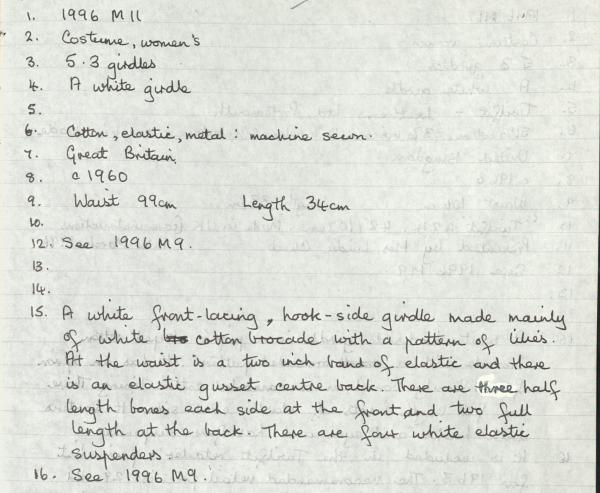 1. 1996 M11
2. Costume, women's
3. 5.3 girdles
4. A white girdle
5.
6. Cotton, elastic, metal : machine sewn.
7. Great Britain
8. c 1960
9. Waist 99cm Length 34cm
10.
12. See 1996 M9.
13.
14.
15. A white front-lacing, hook-side girdle made mainly
of white cotton brocade with a pattern of lilies.
At the waist is a two inch band of elastic and there
is an elastic gusset centre back. There are three half
length bones each side at the front and two full
length at the back. There are four white elastic
suspenders.
16. See 1996 M9.